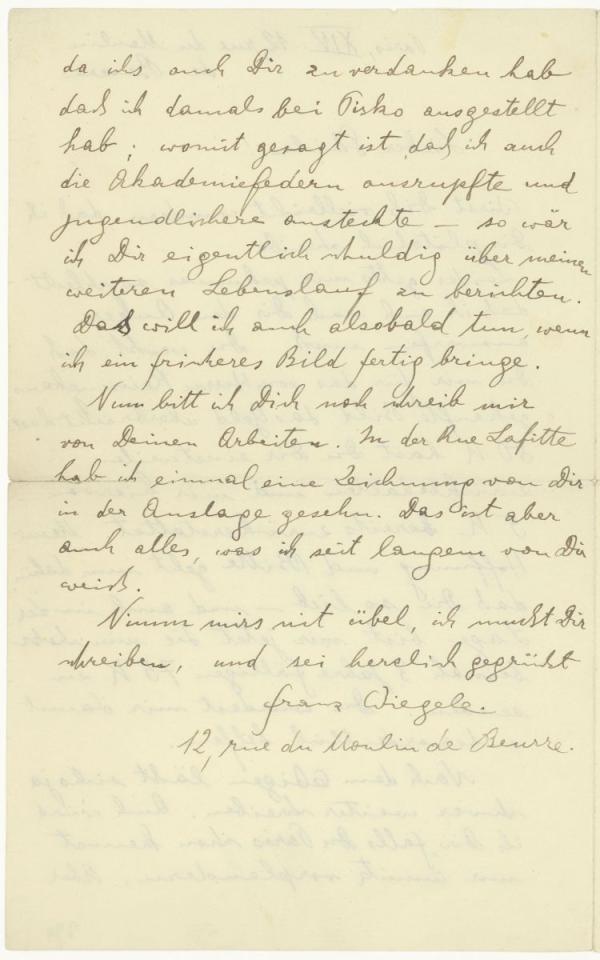 da ichs auch Dir zu verdanken hab
daß ich damals bei Pisko ausgestellt
hab; womit gesagt ist, daß ich auch
die Akademiefedern ausrupfte und
jugendlichere ansteckte – so wär
ich Dir eigentlich schuldig über meinen
weiteren Lebenslauf zu berichten.
Das will ich auch alsobald tun, wenn
ich ein frischeres Bild fertig bringe.
Nun bitt ich Dich noch schreib mir
von Deinen Arbeiten. In der Rue Lafitte
hab ich einmal eine Zeichnung von Dir
in der Auslage gesehn. Das ist aber
auch alles, was ich seit langem von Dir
weiß.
Nimm mirs nit übel, ich mußt Dir
schreiben, und sei herzlich gegrüßt
Franz Wiegele.
12, rue du Moulin de Beurre.